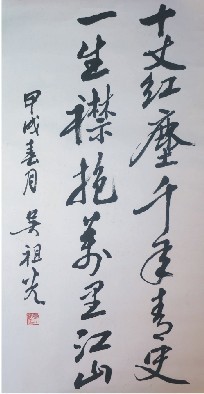 十丈红尘千年青史
一生襟抱万里江山
甲戌春月 吴祖光